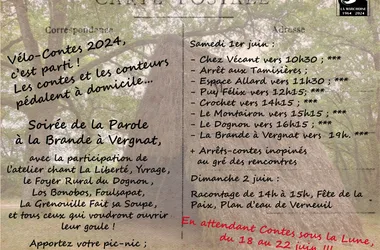 CARTE POSTALE
LA MARCHOISE
1964 - 2024
Correspondance
Adresse
Vélo-Contes 2024,
c'est parti !
Les contes et les conteurs
pédalent à domicile...
Soirée de la Parole
à la Brande à Vergnat,
avec la participation de
l'atelier chant La Liberté, Yvrage,
le Foyer Rural du Dognon,
Los Bonobos, Foulsapat,
La Grenouille Fait sa Soupe,
et tous ceux qui voudront ouvrir
leur goule !
Apportez votre pic-nic ;
Samedi 1er juin :
- Chez Vécant vers 10h30 ; ***
- Arrêt aux Tamisières ;
- Espace Allard vers 11h30 ; ***
- Puy Félix vers 12h15; ***
- Crochet vers 14h15 ; ***
- Le Montairon vers 15h15 ; ***
- Le Dognon vers 16h15 ; ***
- La Brande à Vergnat vers 19h. ***
+ Arrêts-contes inopinés
au gré des rencontres
Dimanche 2 juin :
Racontage de 14h à 15h, Fête de la
Paix, Plan d'eau de Verneuil
En attendant Contes sous la Lune,
du 18 au 22 juin !!!